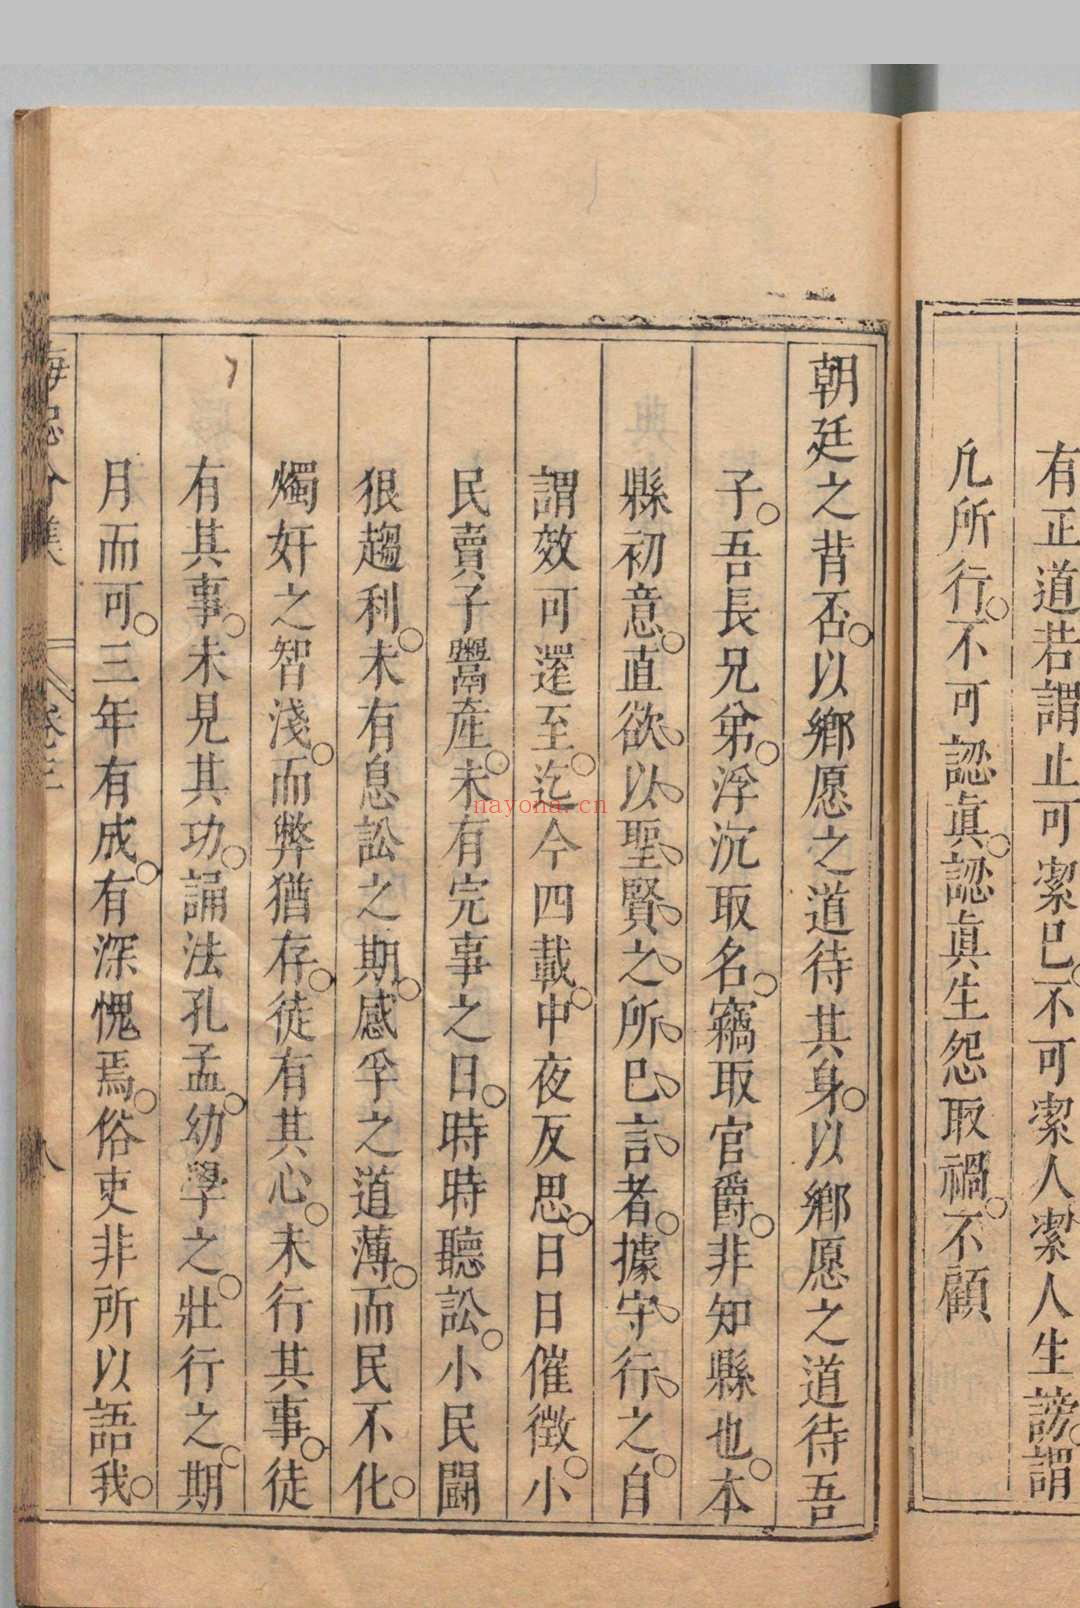 有正道若謂止可潔己不可潔人潔人生謗謂
凡所行不可認眞認眞生怨取禍不顧
朝廷之背否以鄉愿之道待其身以鄉愿之道待吾
子吾長兄弟浮沉取名竊取官爵非知縣也本
縣初意直欲以聖賢之所已言者據守行之自
謂效可還至迄今四載中夜反思日日催徵小
民賣子鬻產未有完事之日時時聽訟小民鬬
狠趨利未有息訟之期感孚之道薄而民不化
燭奸之智淺而弊猶存徒有其心未行其事徒
有其事未見其功誦法孔孟幼學之壯行之期
月而可三年有成有深愧焉俗吏非所以語我
卷三
八
nayona.cn